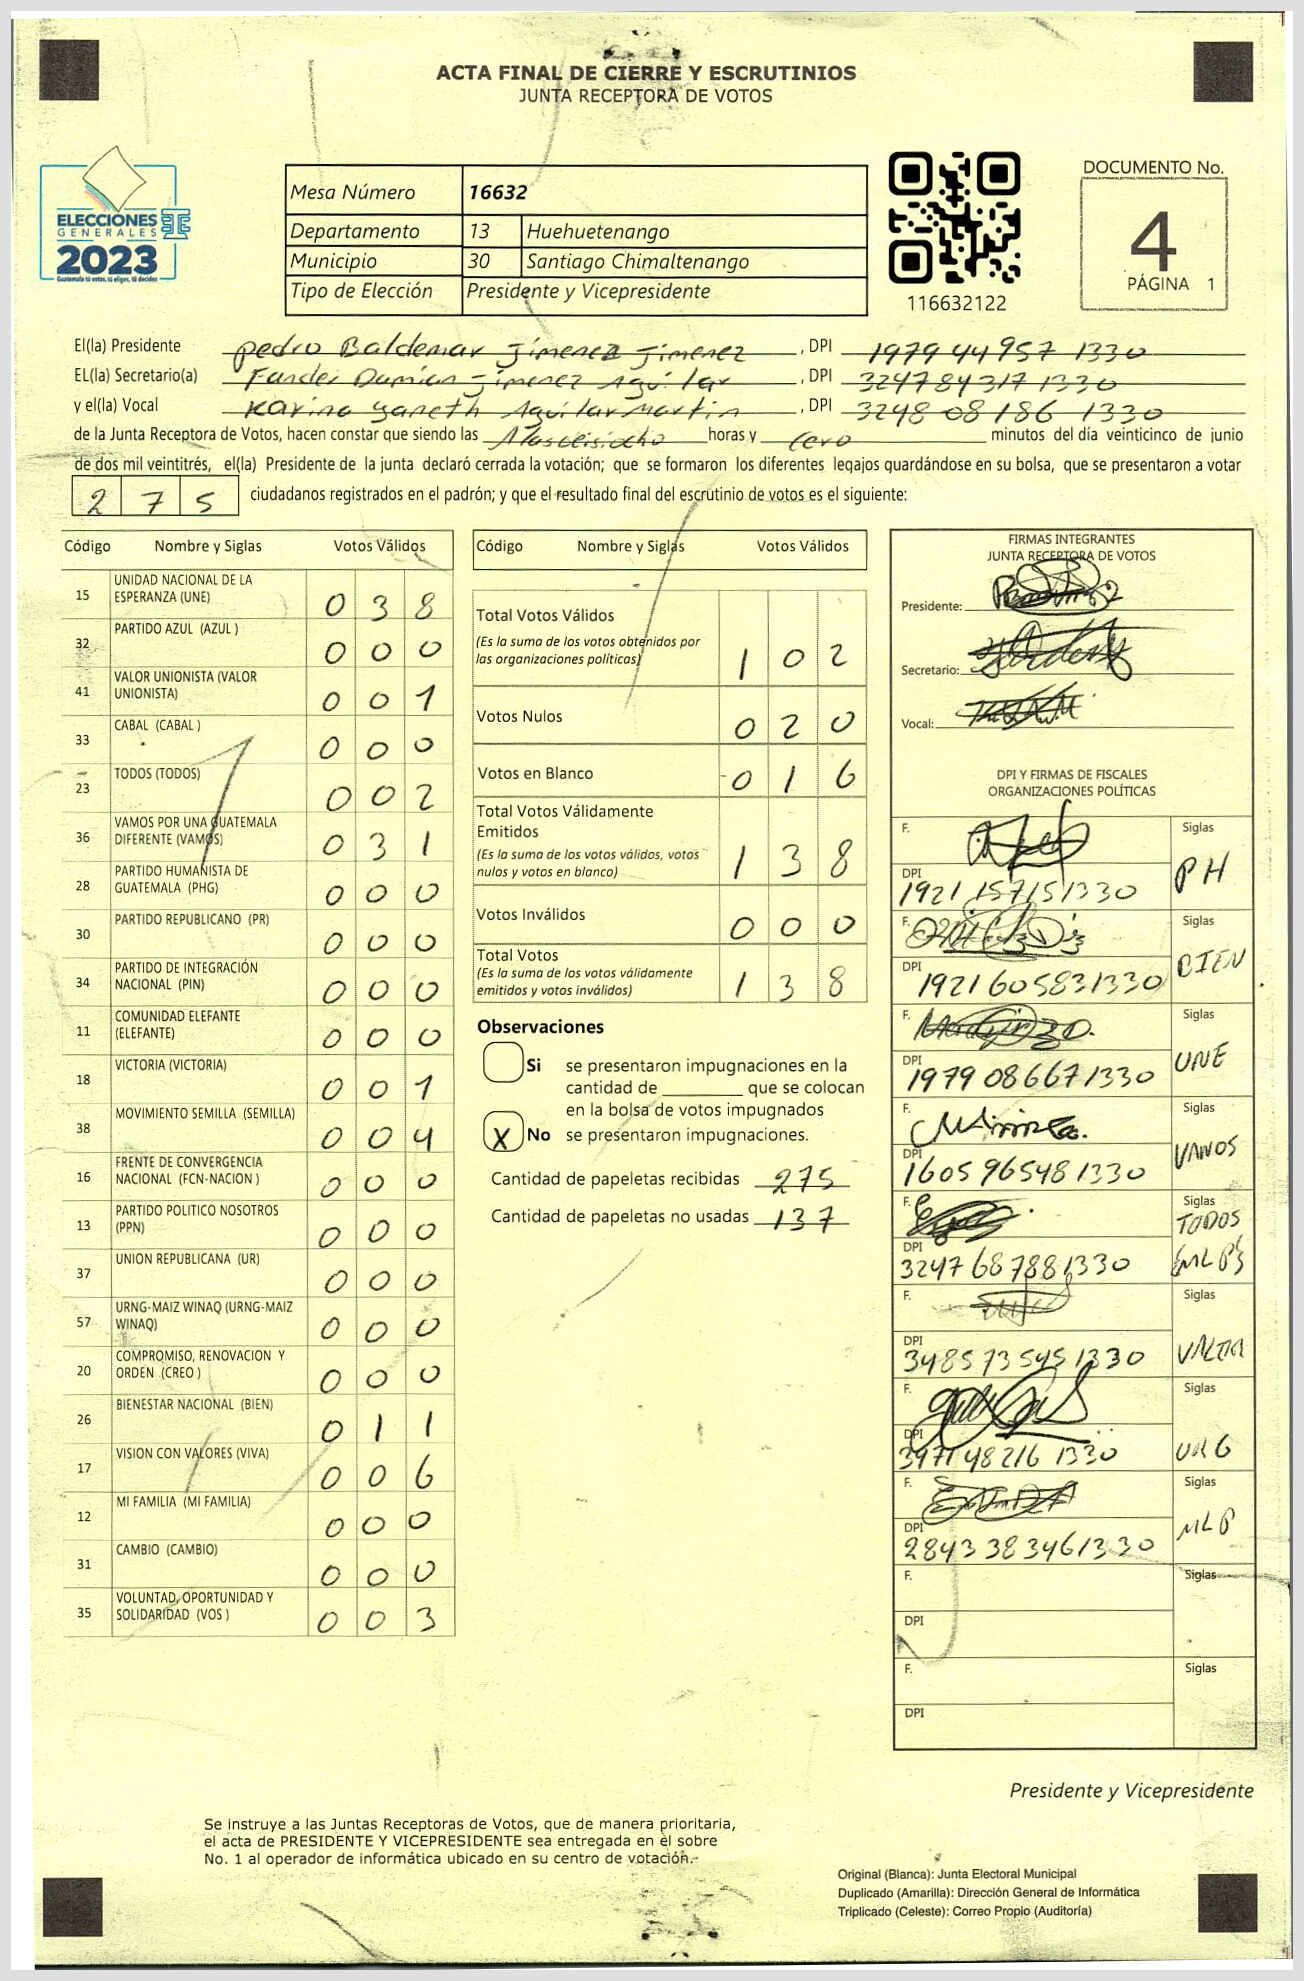 ACTA FINAL DE CIERRE Y ESCRUTINIOS
JUNTA RECEPTORA DE VOTOS
ELECCIONES
GENERALES
2023
Guatemala tú votas, tú eliges, tú decides
Mesa Número 16632
Departamento 13 Huehuetenango
Municipio 30 Santiago Chimaltenango
Tipo de Elección Presidente y Vicepresidente
116632122
DOCUMENTO No.
4
PÁGINA 1
El(la) Presidente Pedro Baldemar Jimenez Jimenez , DPI 1979 44957 1330
EL(la) Secretario(a) Damian Jimenez Aguilar , DPI 3247 84317 1330
y el(la) Vocal Karina Yaneth Aguilar Martin , DPI 3248 08186 1330
de la Junta Receptora de Votos, hacen constar que siendo las horas y cero minutos del día veinticinco de junio
de dos mil veintitrés, el(la) Presidente de la junta declaró cerrada la votación; que se formaron los diferentes legajos guardándose en su bolsa, que se presentaron a votar
2 7 5 ciudadanos registrados en el padrón; y que el resultado final del escrutinio de votos es el siguiente:
Código Nombre y Siglas Votos Válidos
15 UNIDAD NACIONAL DE LA ESPERANZA (UNE) 0 3 8
32 PARTIDO AZUL (AZUL ) 0 0 0
41 VALOR UNIONISTA (VALOR UNIONISTA) 0 0 1
33 CABAL (CABAL ) 0 0 0
23 TODOS (TODOS) 0 0 2
36 VAMOS POR UNA GUATEMALA DIFERENTE (VAMOS) 0 3 1
28 PARTIDO HUMANISTA DE GUATEMALA (PHG) 0 0 0
30 PARTIDO REPUBLICANO (PR) 0 0 0
34 PARTIDO DE INTEGRACIÓN NACIONAL (PIN) 0 0 0
11 COMUNIDAD ELEFANTE (ELEFANTE) 0 0 0
18 VICTORIA (VICTORIA) 0 0 1
38 MOVIMIENTO SEMILLA (SEMILLA) 0 0 4
16 FRENTE DE CONVERGENCIA NACIONAL (FCN-NACION ) 0 0 0
13 PARTIDO POLITICO NOSOTROS (PPN) 0 0 0
37 UNION REPUBLICANA (UR) 0 0 0
57 URNG-MAIZ WINAQ (URNG-MAIZ WINAQ) 0 0 0
20 COMPROMISO, RENOVACION Y ORDEN (CREO ) 0 0 0
26 BIENESTAR NACIONAL (BIEN) 0 1 1
17 VISION CON VALORES (VIVA) 0 0 6
12 MI FAMILIA (MI FAMILIA) 0 0 0
31 CAMBIO (CAMBIO) 0 0 0
35 VOLUNTAD, OPORTUNIDAD Y SOLIDARIDAD (VOS ) 0 0 3
Código Nombre y Siglas Votos Válidos
Total Votos Válidos
(Es la suma de los votos obtenidos por
las organizaciones políticas) 1 0 2
Votos Nulos 0 2 0
Votos en Blanco 0 1 6
Total Votos Válidamente
Emitidos
(Es la suma de los votos válidos, votos
nulos y votos en blanco) 1 3 8
Votos Inválidos 0 0 0
Total Votos
(Es la suma de los votos válidamente
emitidos y votos inválidos) 1 3 8
Observaciones
Si se presentaron impugnaciones en la
cantidad de ________ que se colocan
en la bolsa de votos impugnados
X No se presentaron impugnaciones.
Cantidad de papeletas recibidas 275
Cantidad de papeletas no usadas 137
FIRMAS INTEGRANTES
JUNTA RECEPTORA DE VOTOS
Presidente:
Secretario:
Vocal:
DPI Y FIRMAS DE FISCALES
ORGANIZACIONES POLÍTICAS
F. Siglas
DPI 1921 15715 1330 PH
F. Siglas
DPI 1921 60583 1330 BIEN
F. Siglas
DPI 1979 08667 1330 UNE
F. Siglas
DPI 1605 96548 1330 VAMOS
F. Siglas
TODOS
DPI 3247 68788 1330 MLP
F. Siglas
DPI 3485 73545 1330
F. Siglas
DPI 3971 48216 1330
F. Siglas
DPI 2843 38346 1330 MLP
F. Siglas
DPI
F. Siglas
DPI
Presidente y Vicepresidente
Se instruye a las Juntas Receptoras de Votos, que de manera prioritaria,
el acta de PRESIDENTE Y VICEPRESIDENTE sea entregada en el sobre
No. 1 al operador de informática ubicado en su centro de votación.
Original (Blanca): Junta Electoral Municipal
Duplicado (Amarilla): Dirección General de Informática
Triplicado (Celeste): Correo Propio (Auditoría)